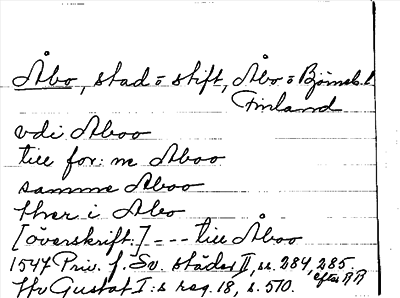 Åbo, stad o stift, Åbo o Björneb. l
Finland
vdi Aboo
till for: ne Aboo
samme Aboo
thver i Abo
[överskrift:] --- till Åboo
1547 Priv. f. Sv. städer II, s. 284, 285
efter RR
Hv Gustaf I:s reg. 18, s. 510.